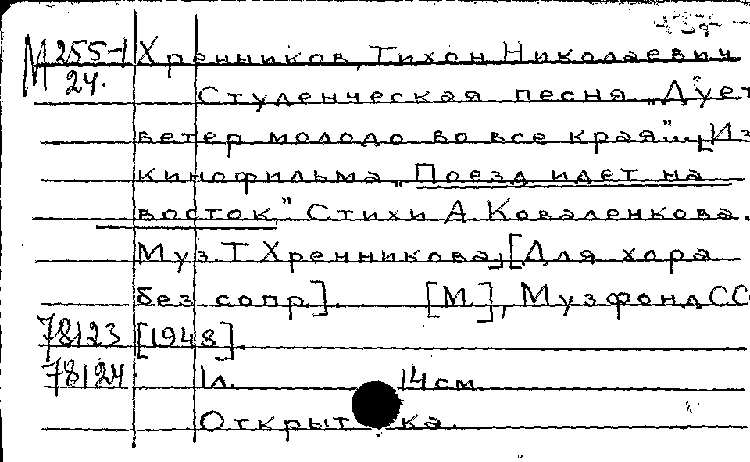 М 255-1 Хренников, Тихон Николаевич
24.
Студенческая песня „Дует
ветер молодо во все края"... [Из
кинофильма „Поезд идет на
восток". Стихи А. Коваленкова.
Муз. Т. Хренникова] [Для хора
без сопр.]. [М.], Музфонд СС
78123 [1948].
78124 1 л. 14 см
Открытка.